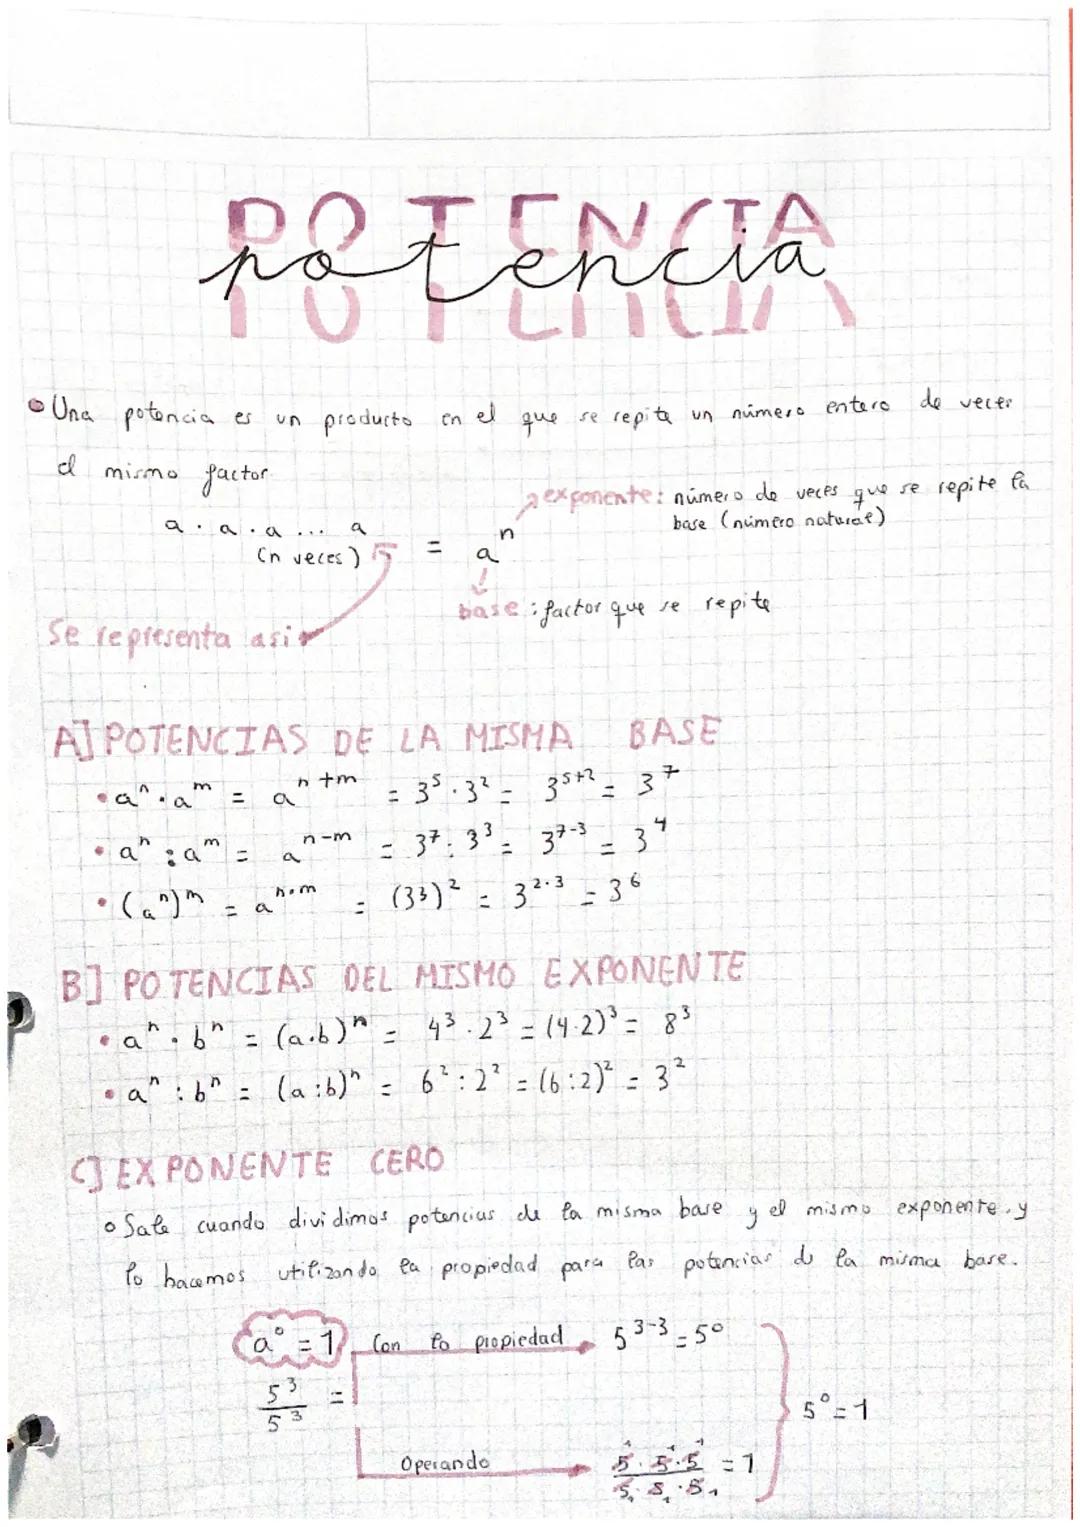 POTENCIA
potencia
Una potencia es un producto en el que se repite un número entero de veces
el mismo factor.
exponente: número de veces que se repite la
base (número natural)
a · a · a ... a
(n veces)
= aⁿ
base: factor que se repite
Se representa asi
A] POTENCIAS DE LA MISMA BASE
• aⁿ · aᵐ = aⁿ⁺ᵐ = 3⁵ · 3² = 3⁵⁺² = 3⁷
• aⁿ : aᵐ = aⁿ⁻ᵐ = 3⁷ : 3³ = 3⁷⁻³ = 3⁴
• (aⁿ)ᵐ = aⁿ·ᵐ = (3³)² = 3²·³ = 3⁶
B] POTENCIAS DEL MISMO EXPONENTE
• aⁿ · bⁿ = (a·b)ⁿ = 4³ · 2³ = (4·2)³ = 8³
• aⁿ : bⁿ = (a:b)ⁿ = 6² : 2² = (6:2)² = 3²
C] EXPONENTE CERO
Sale cuando dividimos potencias de la misma base y el mismo exponente, y
lo hacemos utilizando la propiedad para las potencias de la misma base.
a⁰ = 1 Con la propiedad 5³⁻³ = 5⁰
5³/5³ =
5⁰ = 1
Operando 5·5·5/5·5·5 = 1